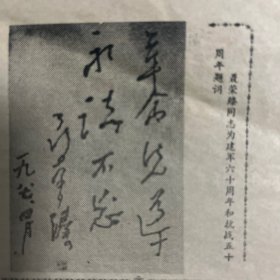 聂荣臻同志为建军六十周年和抗战五十
周年题词
革命先
永誌不忘
聂荣臻
一九八七.四月